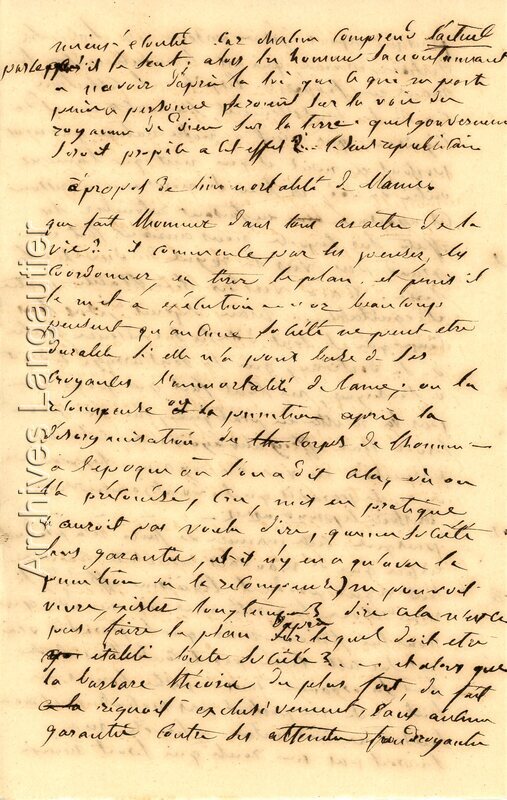 car chacun comprend l'actuel
parceq'il le sent; alors les hommes
a n'avoir d'après la loi que ce qui ne porte
peine a personne seroient sur la voie du
royaume de Dieu sur la terre. quel gouvernement
seroit propre a cet effet? le seul republicain
à propos de l'immortalité de l'ame
que fait l'homme dans tous ces actes de la
vie? il commence par les penser, les
coordonner, en tirer le plan, et puis il
le met a exécution or beaucoup
pensent qu'aucune société ne peut etre
durable si elle n'a pour base de ses
croyances l'immortalité de l'ame; ou la
récompense et la punition après la
désorganisation du corps de l'homme
a l'epoque où l'on a dit cela, où on
l'a préconisé, cru, mit en pratique
n'auroit pas voulu dire, qu'aucune société
sans garantie, et il n'y en a qu'avec la
punition ou la recompense) ne pouvoit
vivre, exister longtemps? dire cela n'est ce
pas faire le plan d'après lequel doit etre
établie toute société? et alors que
la barbare théorie du plus fort, du fait
regnoit exclusivement, sans aucune
garantie contre ses
Archives Langautier